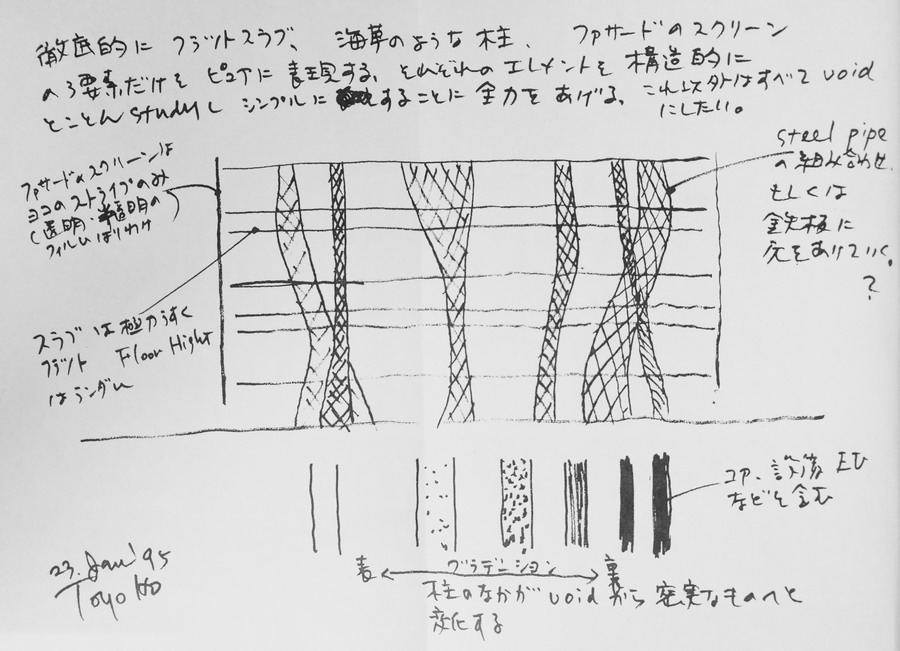 徹底的に フラットスラブ、 海草のような柱、 ファサードのスクリーン
の3要素だけを ピュアに表現する、それぞれのエレメントを構造的に
とことんstudyし シンプルに することに全力をあげる、これ以外はすべてvoid
にしたい。
ファサードのスクリーンは
ヨコのストライプのみ
(透明・半透明の
フィルムはりわけ
スラブは極力うすく
フラット Floor Hight
はランダム
steel pipe
の組み合わせ
もしくは
鉄板に
穴をあけていく。
?
コア、設備 EV
などを含む
表 グラデーション 裏
柱のなかがvoidから密実なものへと
変化する
23. Jan '95
Toyo Ito